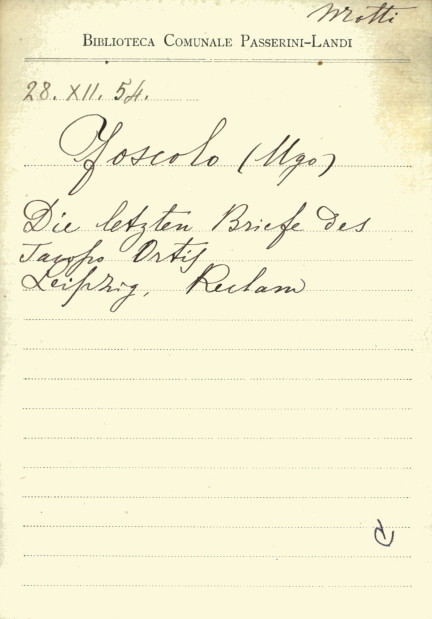 Motti
BIBLIOTECA COMUNALE PASSERINI-LANDI
28. XII. 54.
Foscolo (Ugo)
Die letzten Briefe des
Jacopo Ortis
Leipzig, Reclam